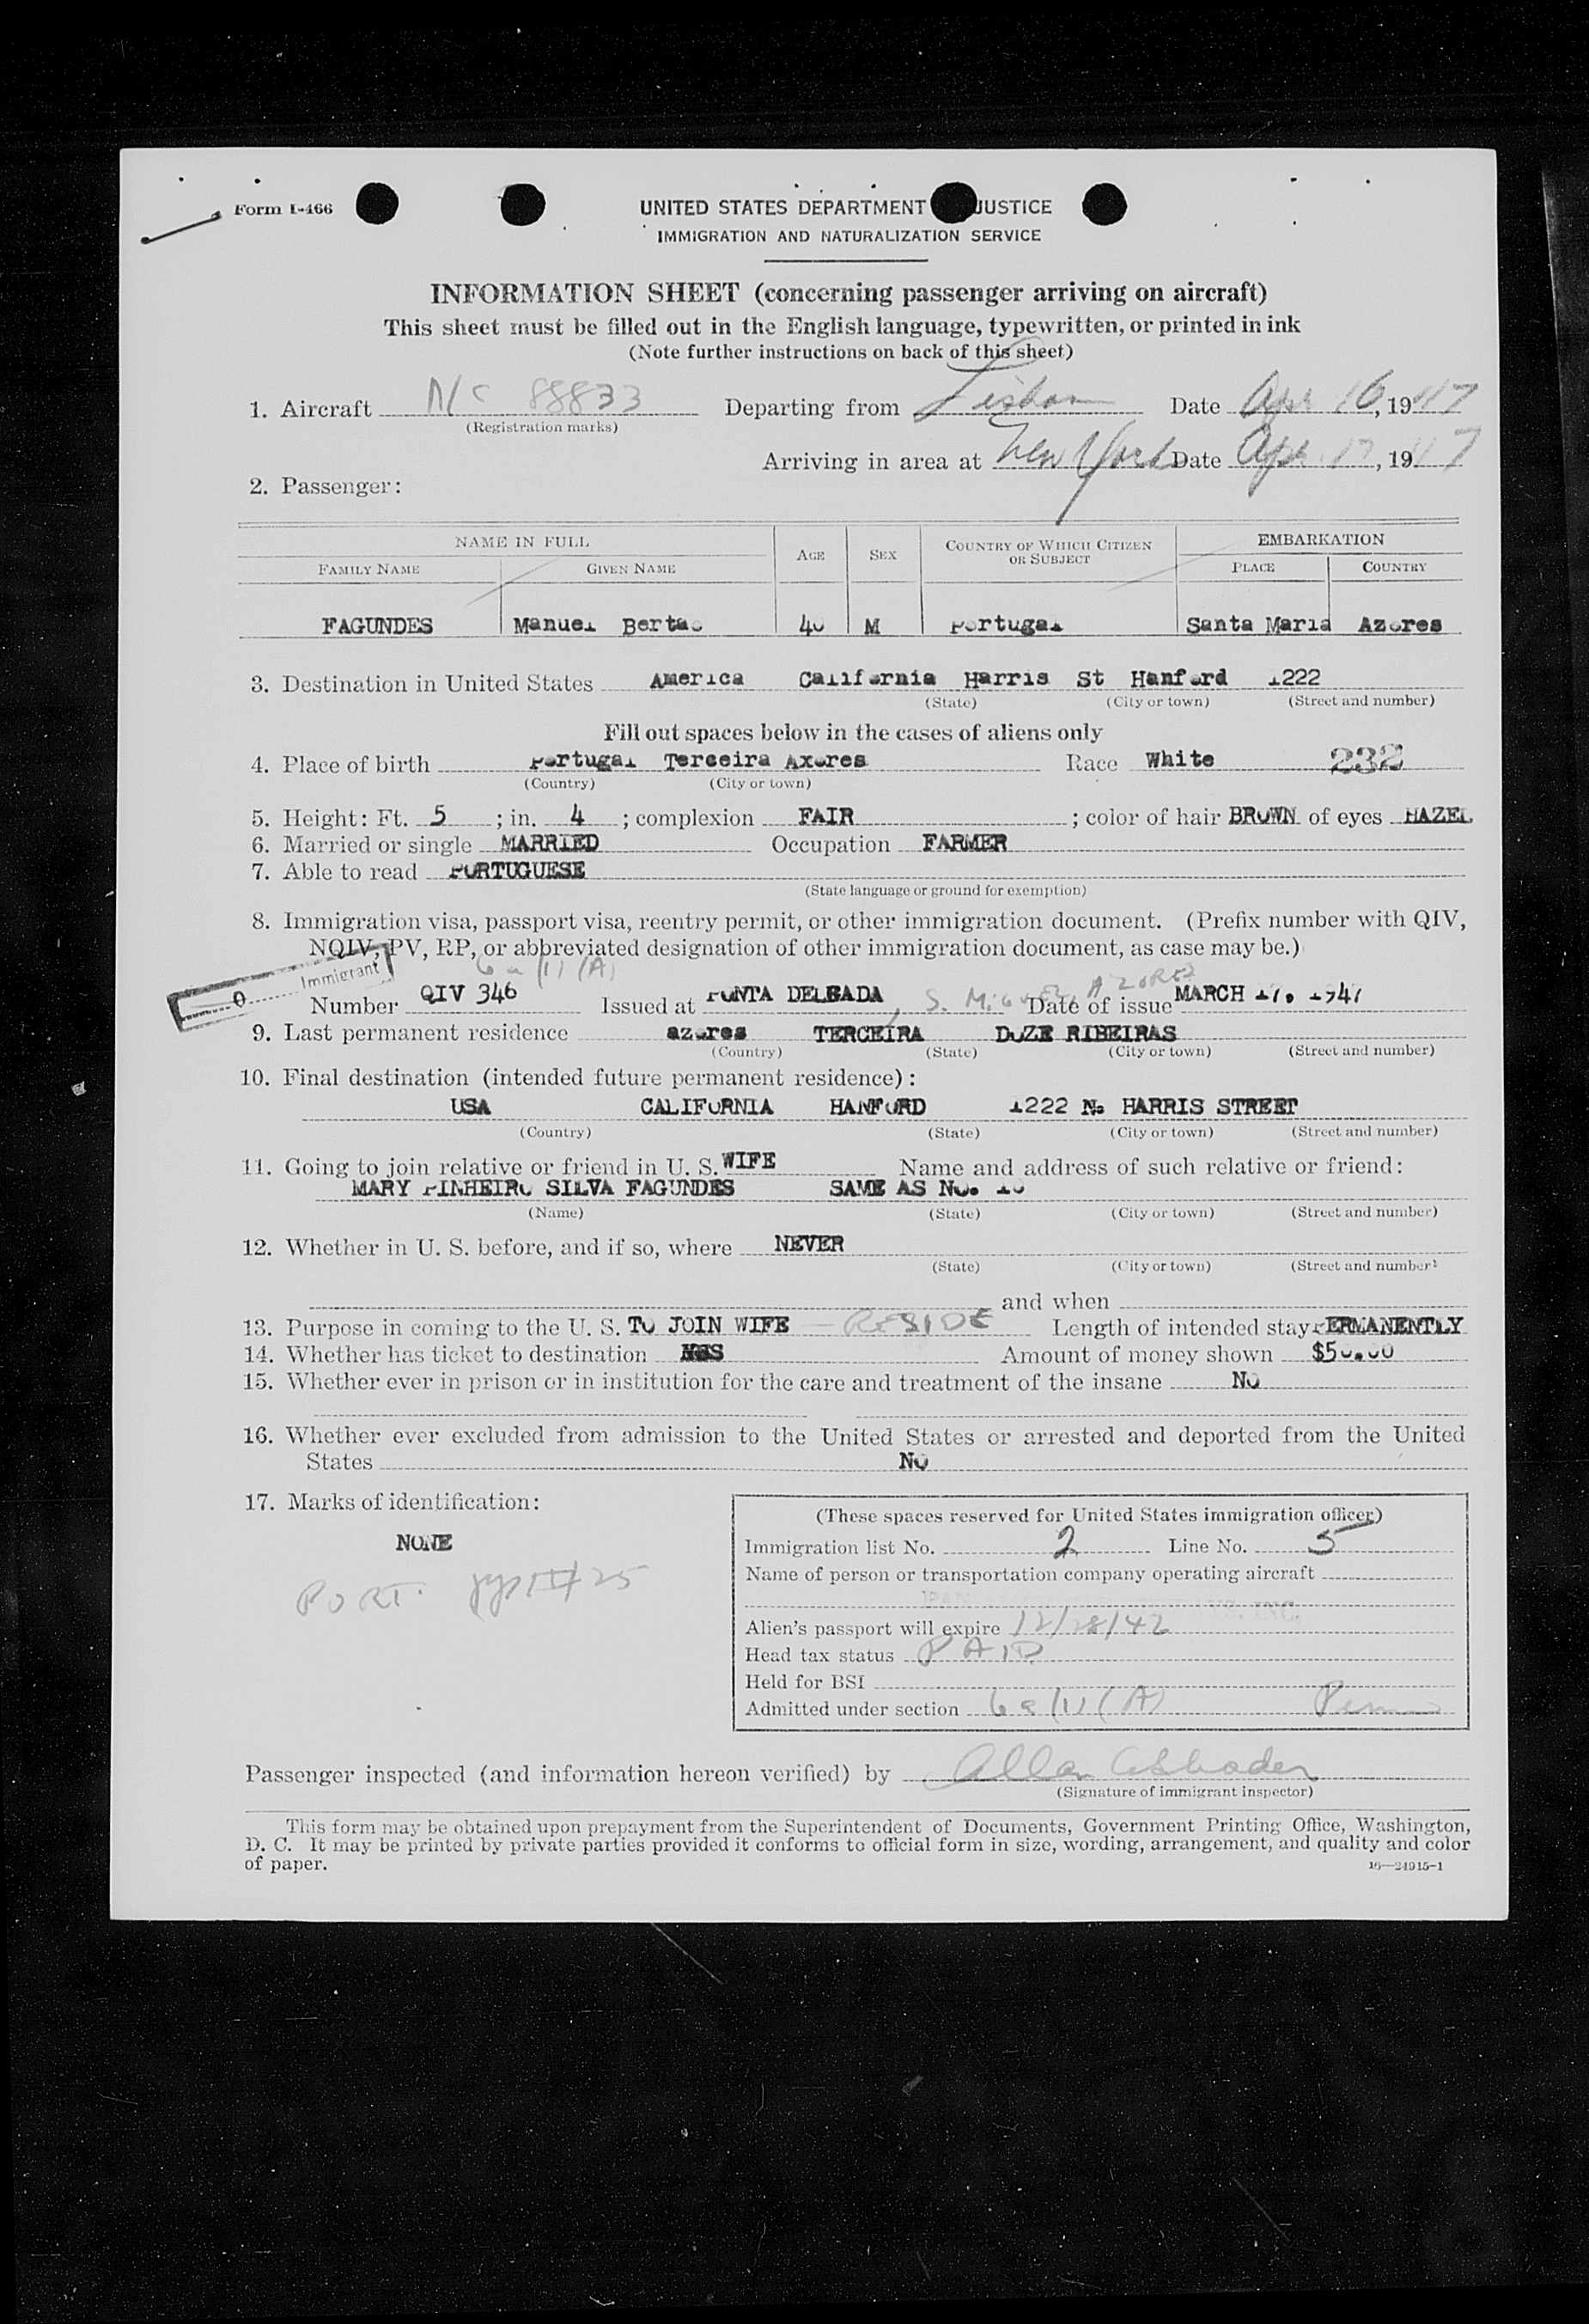 Form I-466
UNITED STATES DEPARTMENT JUSTICE
IMMIGRATION AND NATURALIZATION SERVICE
INFORMATION SHEET (concerning passenger arriving on aircraft)
This sheet must be filled out in the English language, typewritten, or printed in ink
(Note further instructions on back of this sheet)
1. Aircraft N/C 88833 Departing from Lisbon Date Apr 16, 1947
(Registration marks)
Arriving in area at New York Date Apr 17, 1947
2. Passenger:
NAME IN FULL AGE SEX COUNTRY OF WHICH CITIZEN OR SUBJECT EMBARKATION
FAMILY NAME GIVEN NAME PLACE COUNTRY
FAGUNDES Manuel 40 M Portugal Santa Maria Azores
3. Destination in United States America California Harris St Hanford 1222
(State) (City or town) (Street and number)
Fill out spaces below in the cases of aliens only
4. Place of birth Portugal Terceira Axores Race White 232
(Country) (City or town)
5. Height: Ft. 5 ; in. 4 ; complexion FAIR ; color of hair BROWN of eyes HAZEL
6. Married or single MARRIED Occupation FARMER
7. Able to read PORTUGUESE
(State language or ground for exemption)
8. Immigration visa, passport visa, reentry permit, or other immigration document. (Prefix number with QIV,
NQIV, PV, RP, or abbreviated designation of other immigration document, as case may be.)
Immigrant 6a (1) (A)
Number QIV 346 Issued at PONTA DELGADA, S. MIGUEL, AZORES Date of issue MARCH 17, 1947
9. Last permanent residence azores TERCEIRA DOZE RIBEIRAS
(Country) (State) (City or town) (Street and number)
10. Final destination (intended future permanent residence):
USA CALIFORNIA HANFORD 1222 No HARRIS STREET
(Country) (State) (City or town) (Street and number)
11. Going to join relative or friend in U. S. WIFE Name and address of such relative or friend:
MARY PINHEIRO SILVA FAGUNDES SAME AS NO. 10
(Name) (State) (City or town) (Street and number)
12. Whether in U. S. before, and if so, where NEVER
(State) (City or town) (Street and number)
and when
13. Purpose in coming to the U. S. TO JOIN WIFE — RESIDE Length of intended stay PERMANENTLY
14. Whether has ticket to destination Amount of money shown $50.00
15. Whether ever in prison or in institution for the care and treatment of the insane No
16. Whether ever excluded from admission to the United States or arrested and deported from the United
States No
17. Marks of identification:
NONE
PORT.
(These spaces reserved for United States immigration officer)
Immigration list No. 2 Line No. 5
Name of person or transportation company operating aircraft
Alien's passport will expire 12/28/42
Head tax status PAID
Held for BSI
Admitted under section 6a (1) (A)
Passenger inspected (and information hereon verified) by Allan
(Signature of immigrant inspector)
This form may be obtained upon prepayment from the Superintendent of Documents, Government Printing Office, Washington,
D. C. It may be printed by private parties provided it conforms to official form in size, wording, arrangement, and quality and color
of paper.
16—24915-1